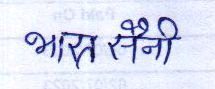 भारत सैनी